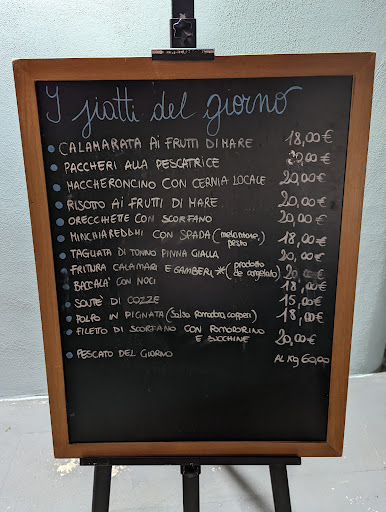 I piatti del giorno
CALAMARATA AI FRUTTI DI MARE 18,00€
PACCHERI ALLA PESCATRICE 20,00€
MACCHERONCINO CON CERNIA LOCALE 20,00€
RISOTTO AI FRUTTI DI MARE 20,00€
ORECCHIETTE CON SCORFANO 20,00€
MINCHIAREDDHI CON SPADA (melanzane, 18,00€
pesto
TAGLIATA DI TONNO PINNA GIALLA 20,00€
FRITURA CALAMARI E GAMBERI * (prodotto 20,00€
de congelato)
BACCALA' CON NOCI 18,00€
SOUTÈ DI COZZE 15,00€
POLPO IN PIGNATA (salsa pomodoro, capperi) 18,00€
FILETTO DI SCORFANO CON POMODORINO
E ZUCCHINE 20,00€
PESCATO DEL GIORNO AL Kg 60,00